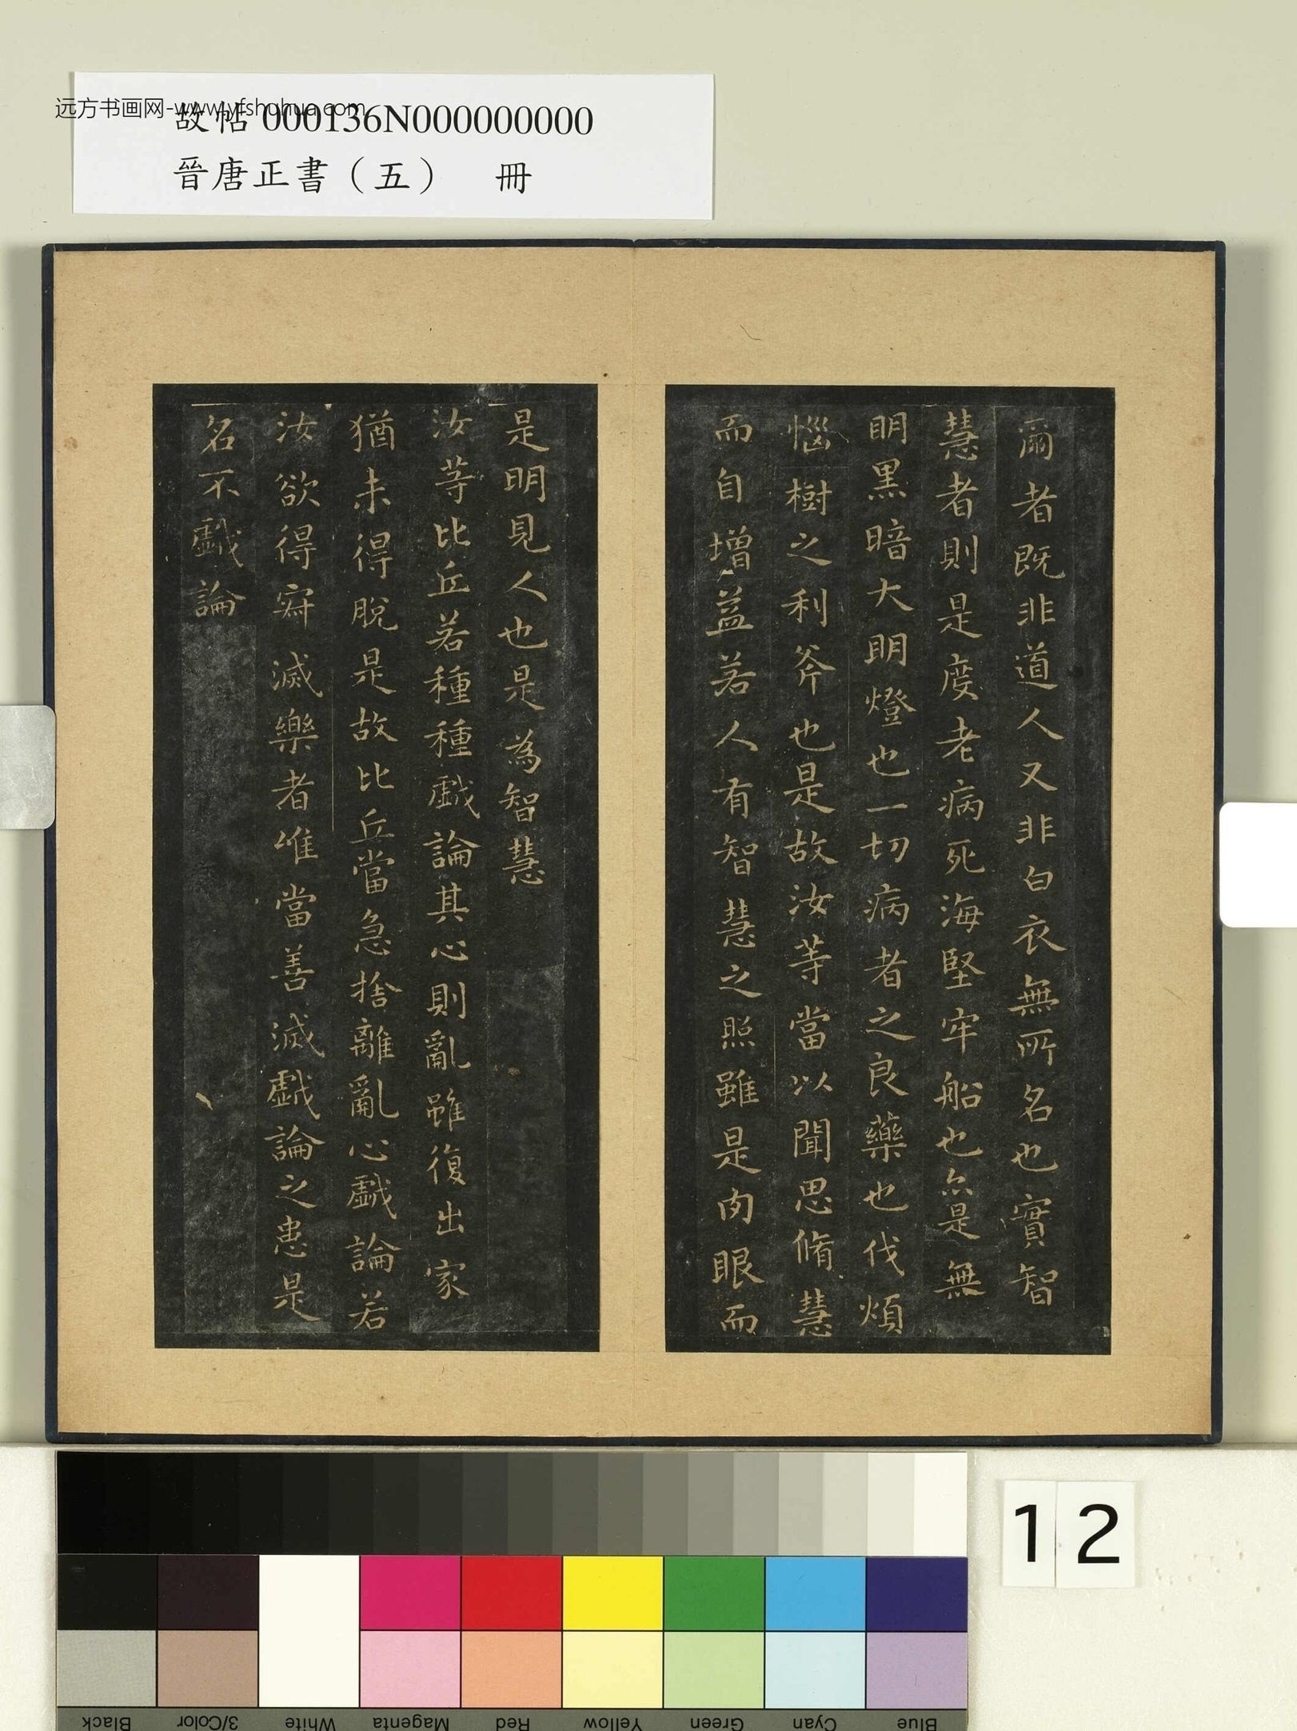 远方书画网-www.yfshuhua.com
故帖 000136N000000000
晉唐正書（五） 冊
爾者既非道人又非白衣無所名也實智
慧者則是度老病死海堅牢船也亦是無
明黑暗大明燈也一切病者之良藥也伐煩
惱樹之利斧也是故汝等當以聞思脩慧
而自增益若人有智慧之照雖是肉眼而
是明見人也是為智慧
汝等比丘若種種戱論其心則亂雖復出家
猶未得脫是故比丘當急捨離亂心戱論若
汝欲得寂滅樂者唯當善滅戱論之患是
名不戱論
12
Black
3/Color
White
Magenta
Red
Yellow
Green
Cyan
Blue